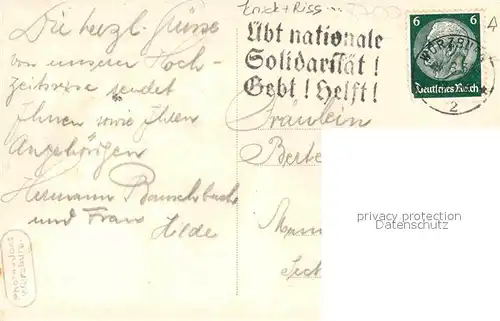 Die herzl. Grüsse
von unserer Hoch-
zeitsreise sendet
Ihnen sowie Ihren
Angehörigen
Hermann Bauschbach
und Frau
Hilde
Knick + Riss
Übt nationale
Solidarität!
Gebt! Helft!
6 6
Deutsches Reich
WÜRZBURG
2
Fräulein
privacy protection
Datenschutz